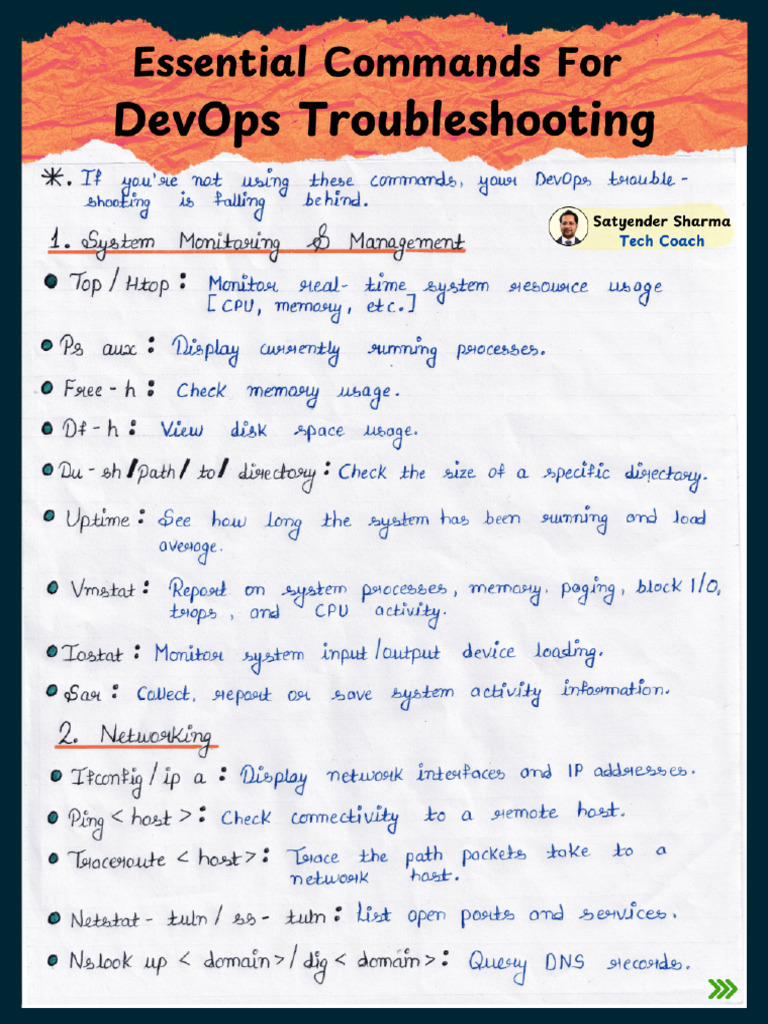 Essential Commands For
DevOps Troubleshooting
*. If you're not using these commands, your DevOps trouble-
shooting is falling behind.
Satyender Sharma
Tech Coach
1. System Monitoring & Management
• Top / Htop : Monitor real-time system resource usage
[CPU, memory, etc.]
• Ps aux : Display currently running processes.
• Free -h : Check memory usage.
• Df -h : View disk space usage.
• Du -sh /path/ to/ directory : Check the size of a specific directory.
• Uptime : See how long the system has been running and load
average.
• Vmstat : Report on system processes, memory, paging, block I/O,
trops, and CPU activity.
• Iostat : Monitor system input/output device loading.
• Sar : Collect, report or save system activity information.
2. Networking
• Ifconfig / ip a : Display network interfaces and IP addresses.
• Ping < host > : Check connectivity to a remote host.
• Traceroute < host > : Trace the path packets take to a
network host.
• Netstat - tuln / ss - tuln : List open ports and services.
• Nslook up < domain > / dig < domain > : Query DNS records.